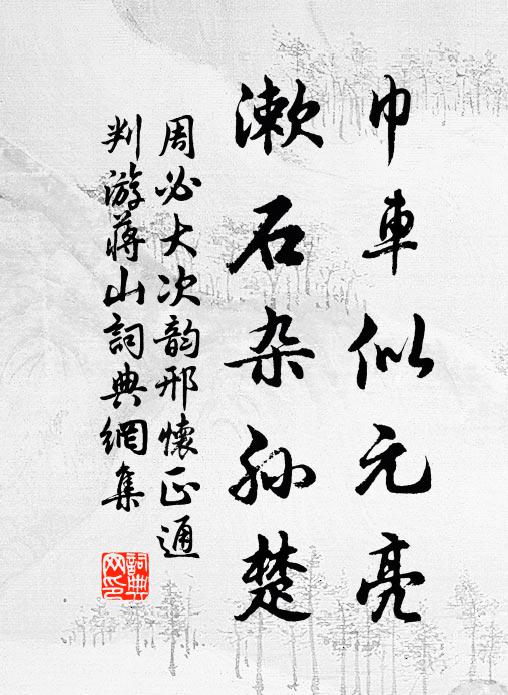 巾車似元亮
漱石杂孙楚
周必大次韵邢懷正通
判游蔣山詞典網集
詞典
网印